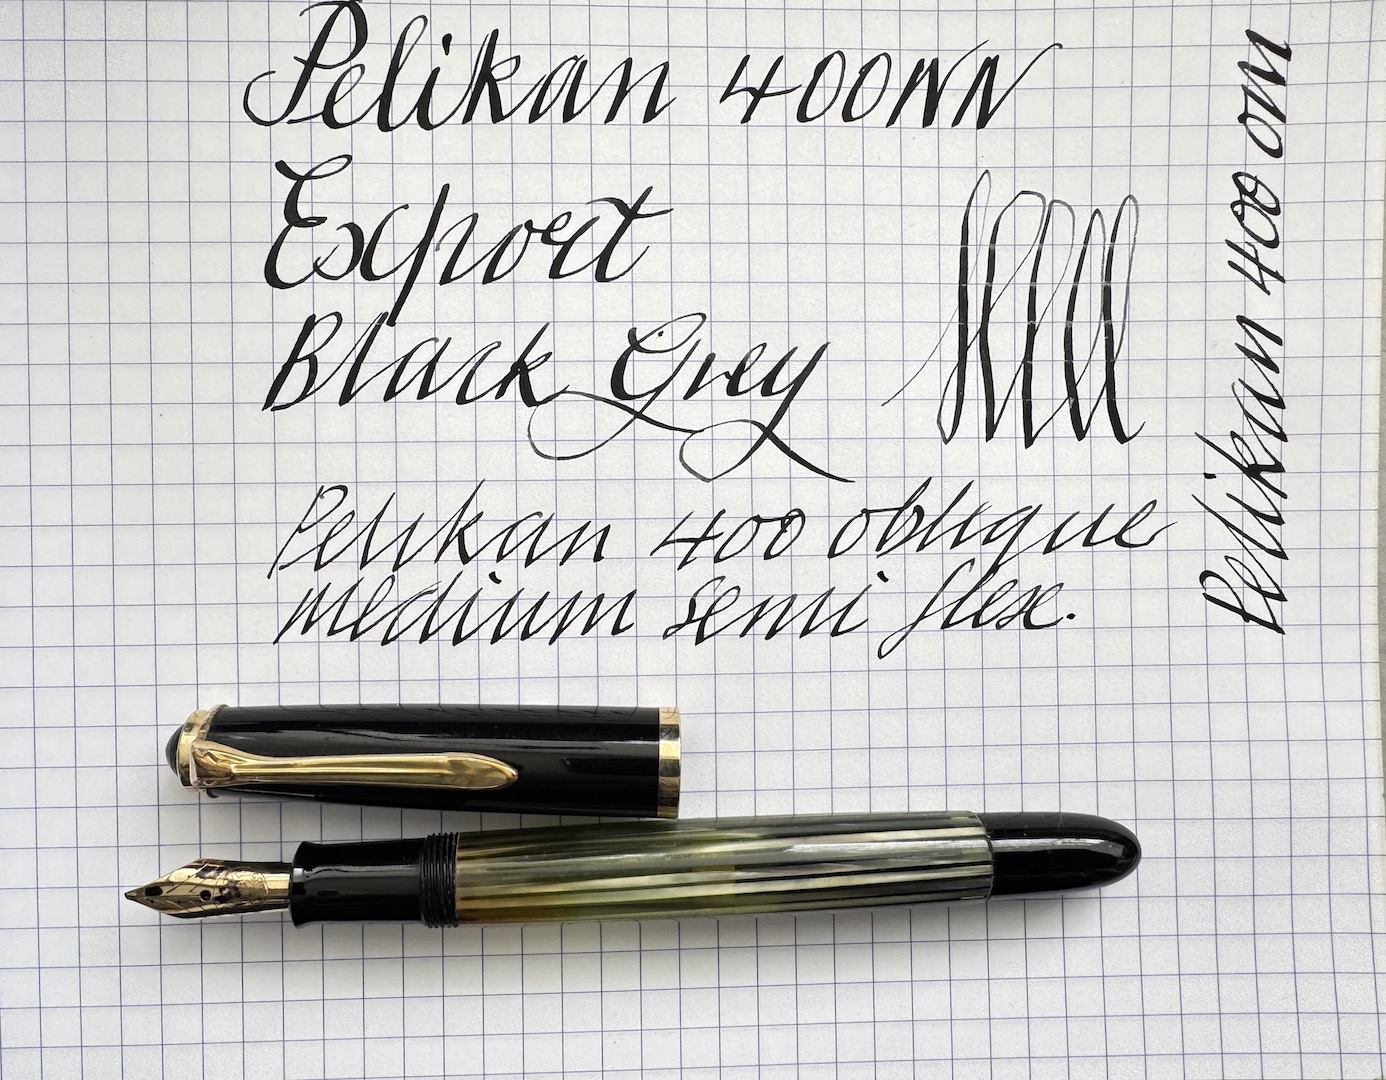 Pelikan 400NN
Export
Black Grey
Pelikan 400 oblique
medium semi flex.
Pelikan 400 OM